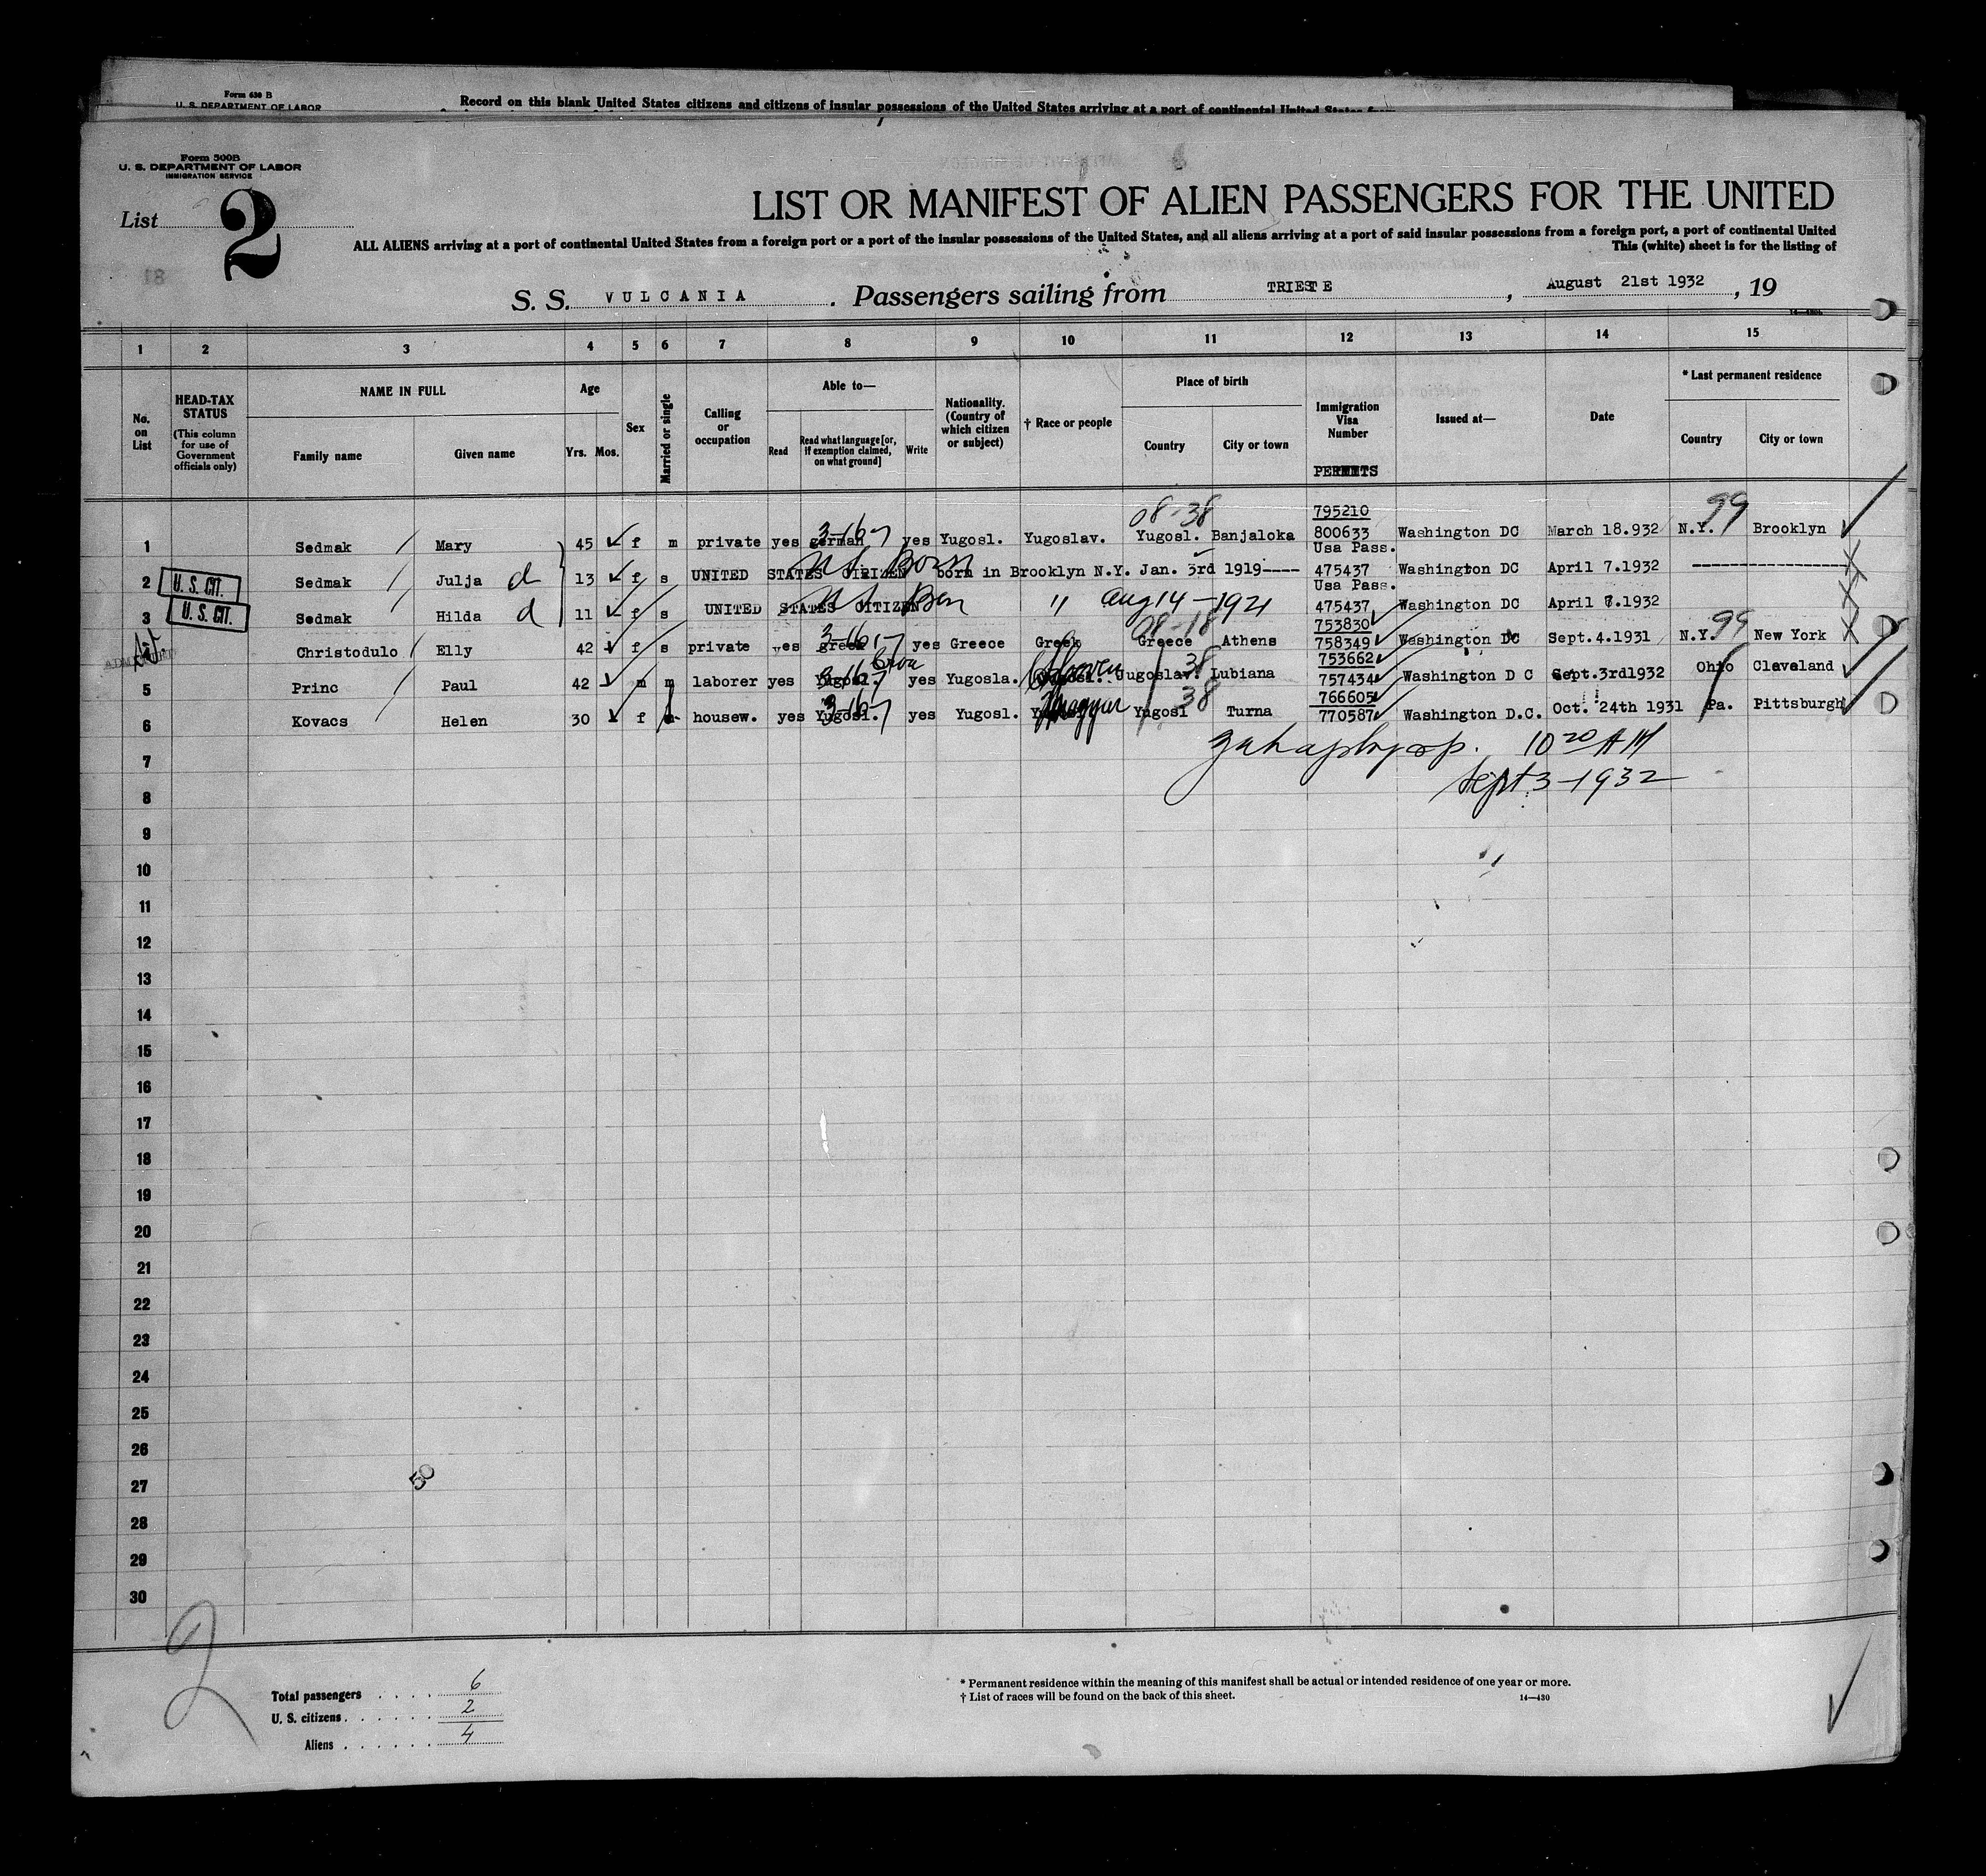 Form 630 B
U. S. DEPARTMENT OF LABOR
Record on this blank United States citizens and citizens of insular possessions of the United States arriving at a port of continental United States from
Form 500B
U. S. DEPARTMENT OF LABOR
IMMIGRATION SERVICE
List 2
LIST OR MANIFEST OF ALIEN PASSENGERS FOR THE UNITED
ALL ALIENS arriving at a port of continental United States from a foreign port or a port of the insular possessions of the United States, and all aliens arriving at a port of said insular possessions from a foreign port, a port of continental United
This (white) sheet is for the listing of
81
S. S. VULCANIA. Passengers sailing from TRIESTE, August 21st 1932, 19
14—430
1 2 3 4 5 6 7 8 9 10 11 12 13 14 15
No. on List
HEAD-TAX STATUS
(This column for use of Government officials only)
NAME IN FULL
Family name Given name
Age
Yrs. Mos.
Sex
Married or single
Calling or occupation
Able to—
Read Read what language [or, if exemption claimed, on what ground] Write
Nationality. (Country of which citizen or subject)
† Race or people
Place of birth
Country City or town
Immigration Visa Number
PERMITS
Issued at—
Date
* Last permanent residence
Country City or town
08-38 795210 99
1 Sedmak Mary 45 f m private yes german 3-16-7 yes Yugosl. Yugoslav. Yugosl. Banjaloka 800633 Washington DC March 18.932 N.Y. Brooklyn
Usa Pass.
2 U. S. CIT. Sedmak Julja d 13 f s UNITED STATES CITIZEN US Born born in Brooklyn N.Y. Jan. 3rd 1919---- 475437 Washington DC April 7.1932 ----------------
Usa Pass.
3 U. S. CIT. Sedmak Hilda d 11 f s UNITED STATES CITIZEN US Born " Aug 14-1921 475437 Washington DC April 7.1932
08-18 753830 99
Christodulo Elly 42 f s private yes greek 3-16-7 yes Greece Greek Greece Athens 758349 Washington DC Sept.4.1931 N.Y. New York
38 753662
5 Princ Paul 42 m m laborer yes Yugosl. 3-16-7 yes Yugosla. Sloven Jugoslav. Lubiana 757434 Washington D C Sept.3rd1932 Ohio Claveland
38 766605
6 Kovacs Helen 30 f housew. yes Yugosl. 3-16-7 yes Yugosl. Magyar Yugosl Turna 770587 Washington D.C. Oct. 24th 1931 Pa. Pittsburgh
7 10 20 AM
8 Sept 3-1932
9
10
11
12
13
14
15
16
17
18
19
20
21
22
23
24
25
26
27 50
28
29
30
2
Total passengers . . . . 6
U. S. citizens . . . . . . 2
Aliens . . . . . . 4
* Permanent residence within the meaning of this manifest shall be actual or intended residence of one year or more.
† List of races will be found on the back of this sheet. 14—430